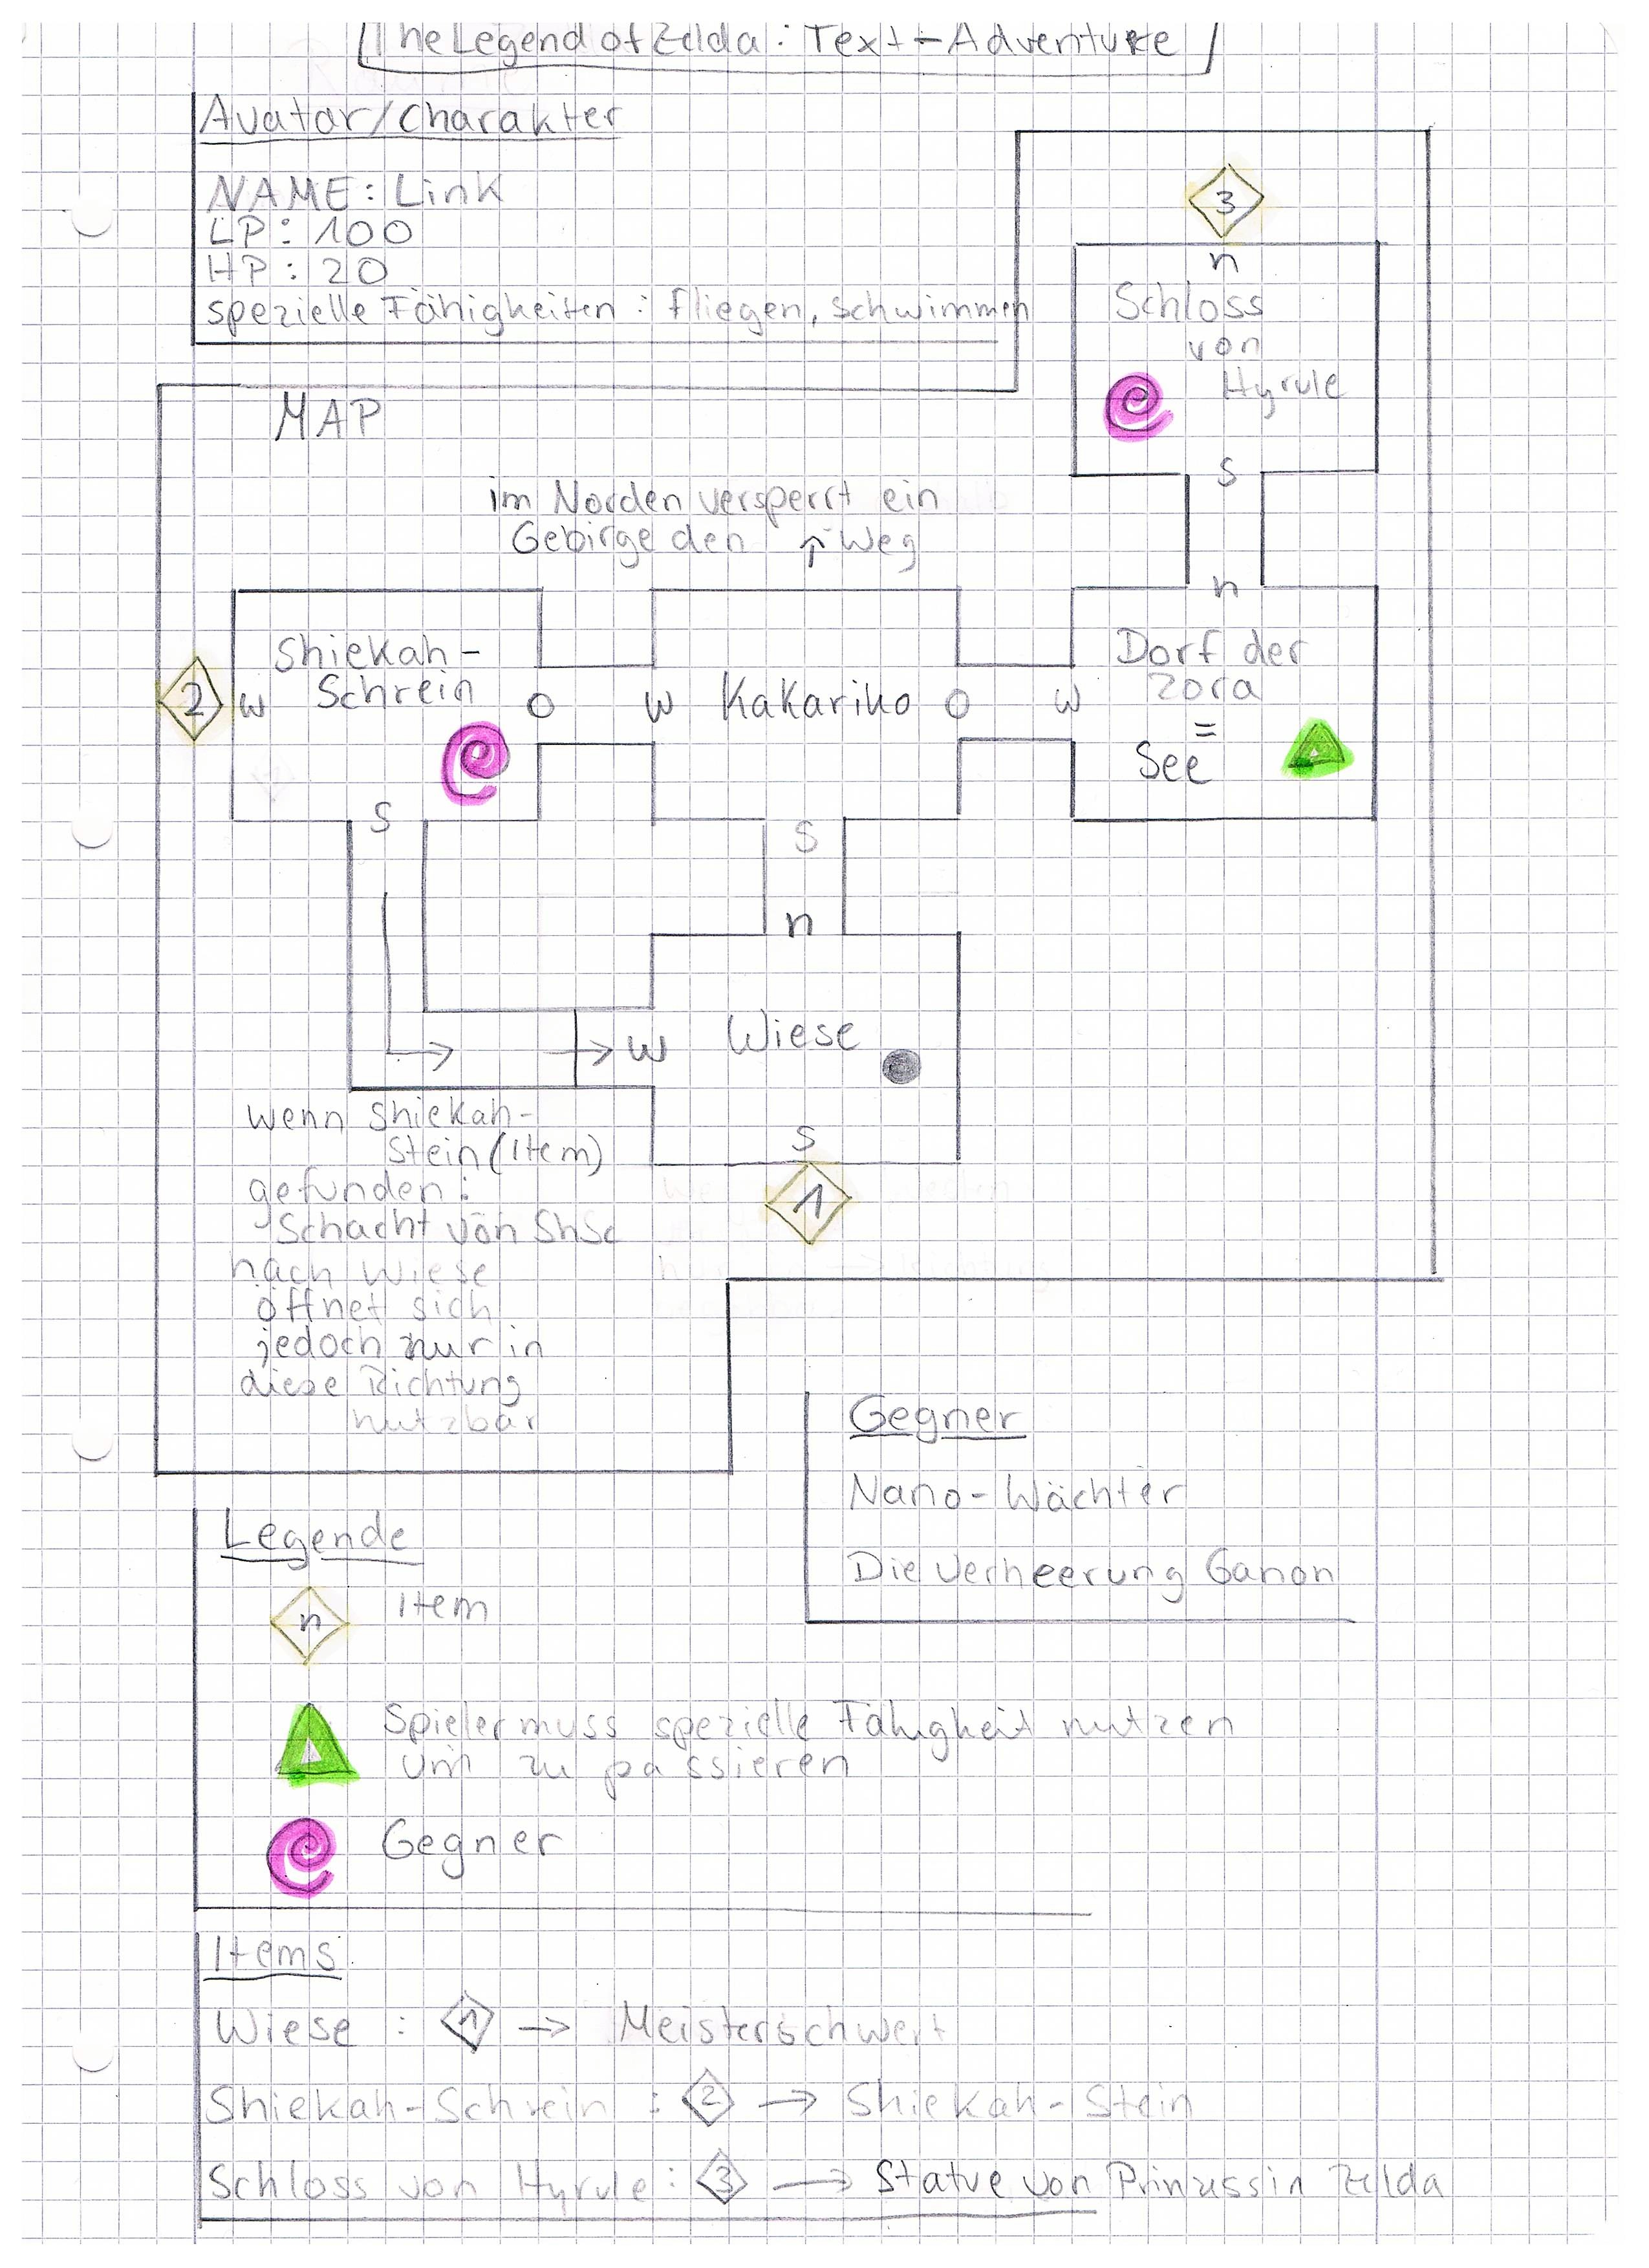 The Legend of Zelda: Text-Adventure
Avatar/Charakter
NAME: Link
LP: 100
HP: 20
spezielle Fähigkeiten: fliegen, schwimmen
3
n
Schloss
von
Hyrule
s
MAP
im Norden versperrt ein
Gebirge den ↑ Weg
n
Shiekah-
Schrein
2 w o w Kakariko o w
Dorf der
Zora
=
See
s
s
n
→ → w Wiese
s
1
wenn Shiekah-
Stein (Item)
gefunden:
Schacht von ShSc
nach Wiese
öffnet sich
jedoch nur in
diese Richtung
nutzbar
Gegner
Nano-Wächter
Die Verheerung Ganon
Legende
n Item
Spieler muss spezielle Fähigkeit nutzen
um zu passieren
Gegner
Items
Wiese : 1 → Meisterschwert
Shiekah-Schrein : 2 → Shiekah-Stein
Schloss von Hyrule: 3 → Statue von Prinzessin Zelda